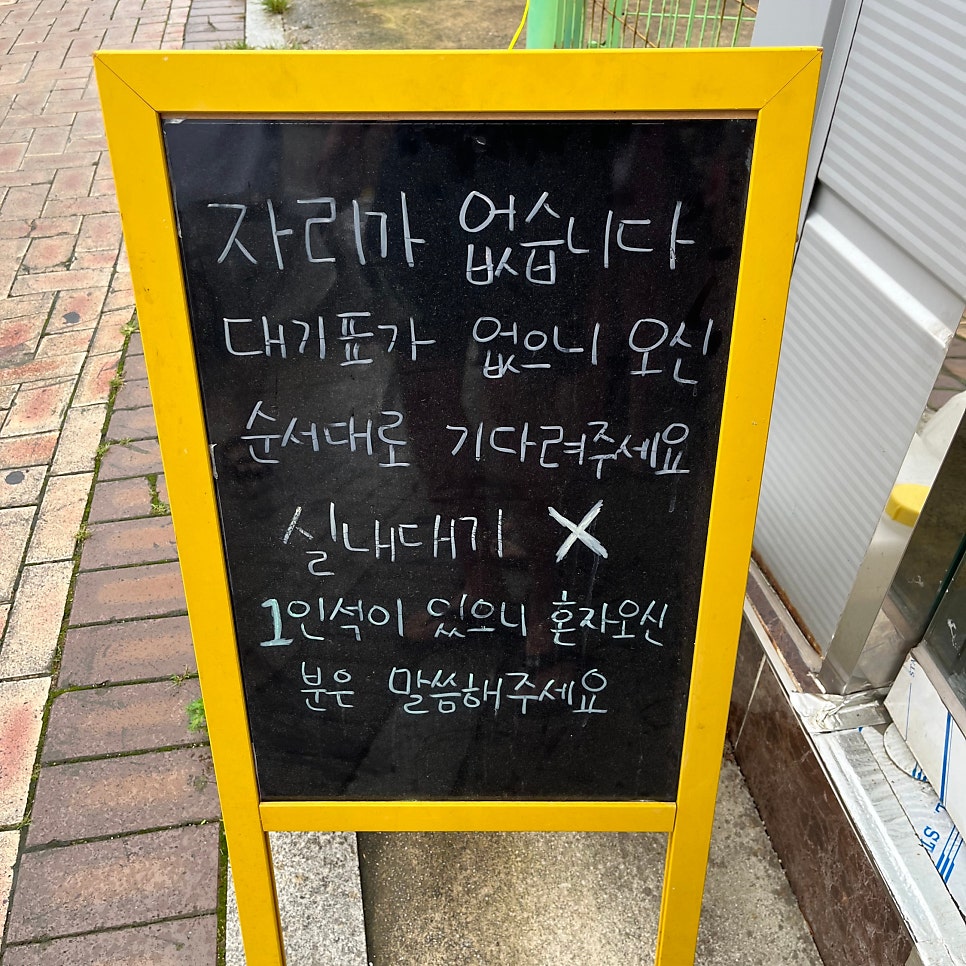 자리가 없습니다
대기표가 없으니 오신
순서대로 기다려주세요
실내대기 X
1인석이 있으니 혼자오신
분은 말씀해주세요